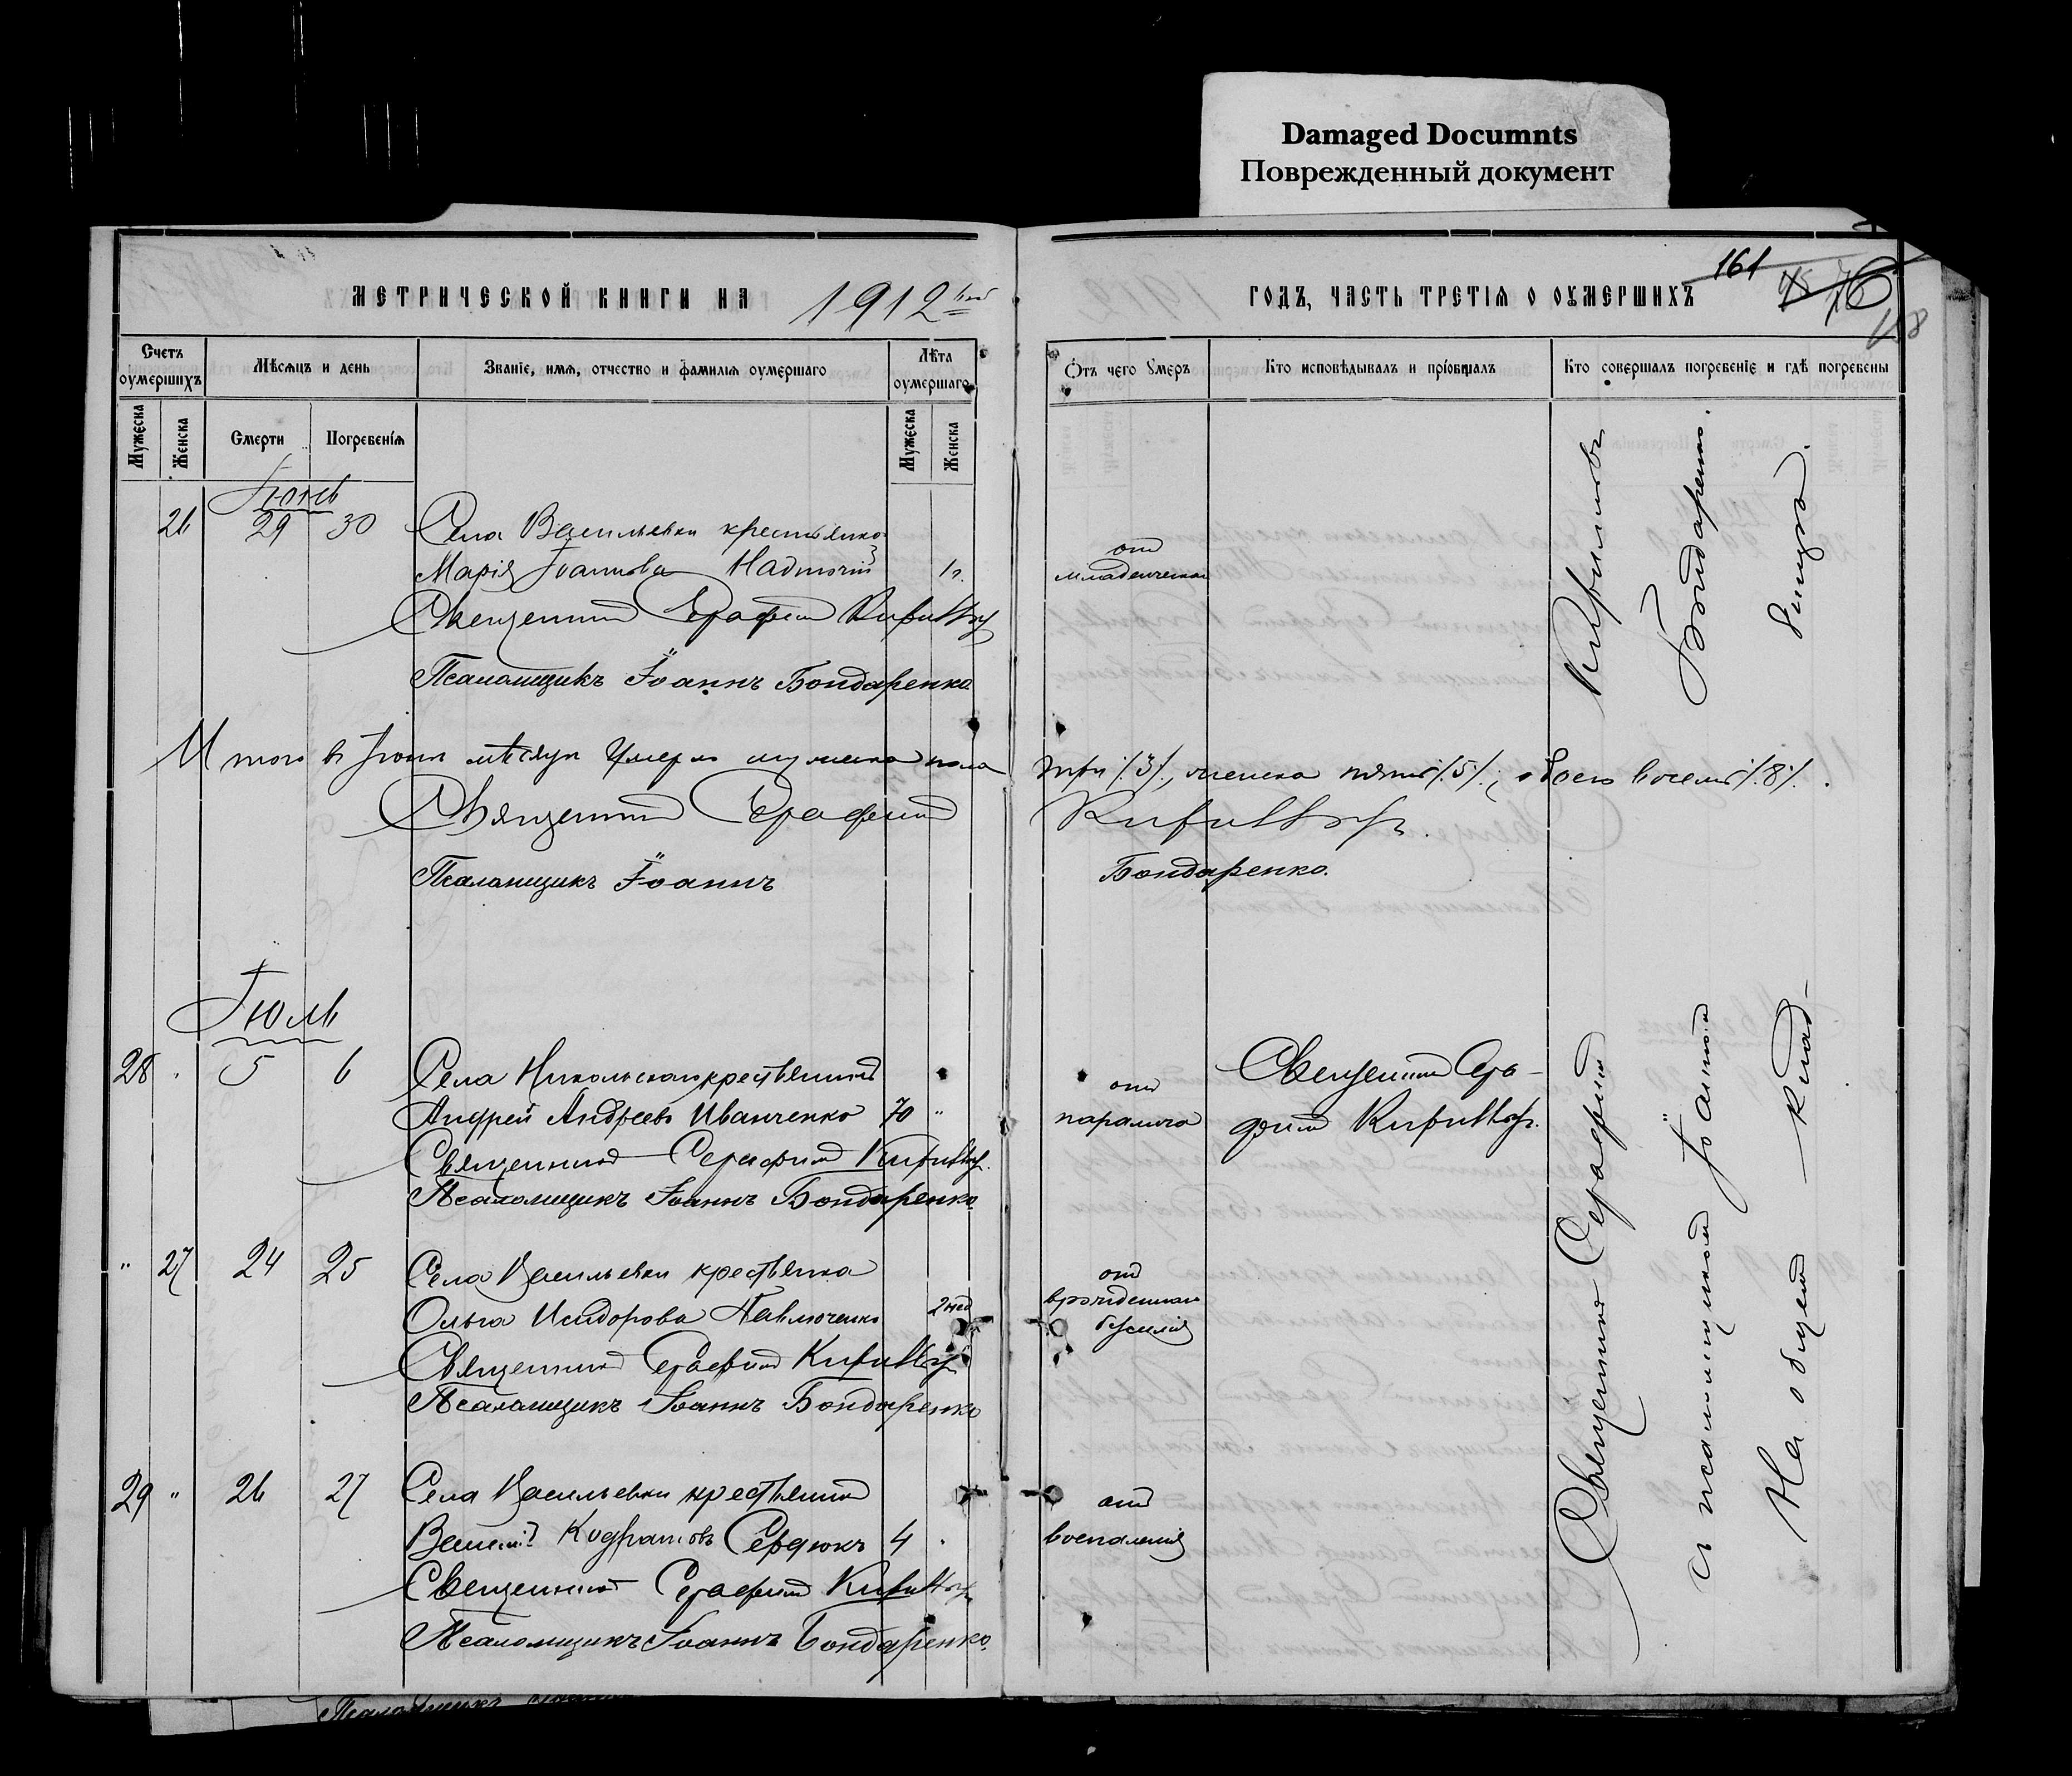 Damaged Documnts
Поврежденный документ
МЕТРИЧЕСКОЙ КНИГИ НА 1912
Счетъ оумершихъ
Мужеска
Женска
Мѣсяцъ и день
Смерти
Погребенія
Званіе, имя, отчество и фамилія оумершаго
Лѣта оумершаго
Мужеска
Женска
Іюнь
26 29 30 Села Васильевки крестьянка
Марія Іоаннова
Священникъ Серафимъ
Псаломщикъ Іоаннъ Бондаренко
Итого въ Іюнѣ мѣсяцѣ умерло мужеска пола
Священникъ Серафимъ
Псаломщикъ Іоаннъ
Іюль
28 5 6 Села Никольскаго крестьянинъ
Андрей Андреевъ Иванченко 70 "
Священникъ Серафимъ
Псаломщикъ Іоаннъ Бондаренко
" 27 24 25 Села Васильевки крестьянка
Ольга Исидорова Павлюченко 2 нед
Священникъ Серафимъ
Псаломщикъ Іоаннъ Бондаренко
29 " 26 27 Села Васильевки крестьянинъ
Сердюкъ 4
Священникъ Серафимъ
Псаломщикъ Іоаннъ Бондаренко
161
76
ГОДЪ, ЧАСТЬ ТРЕТІЯ О ОУМЕРШИХЪ
Отъ чего умеръ
Кто исповѣдывалъ и пріобщалъ
Кто совершалъ погребеніе и гдѣ погребены
отъ
младенческой
три /.3/., женска пять /.5/., обоего восемь /.8/.
Бондаренко.
отъ
паралича
Священникъ Сера-
фимъ
отъ
врожденнаго
безсилія
отъ
воспаленія
Священникъ Серафимъ
и псаломщикомъ Іоанномъ Бондаренко.
На общемъ клад-
бищѣ.